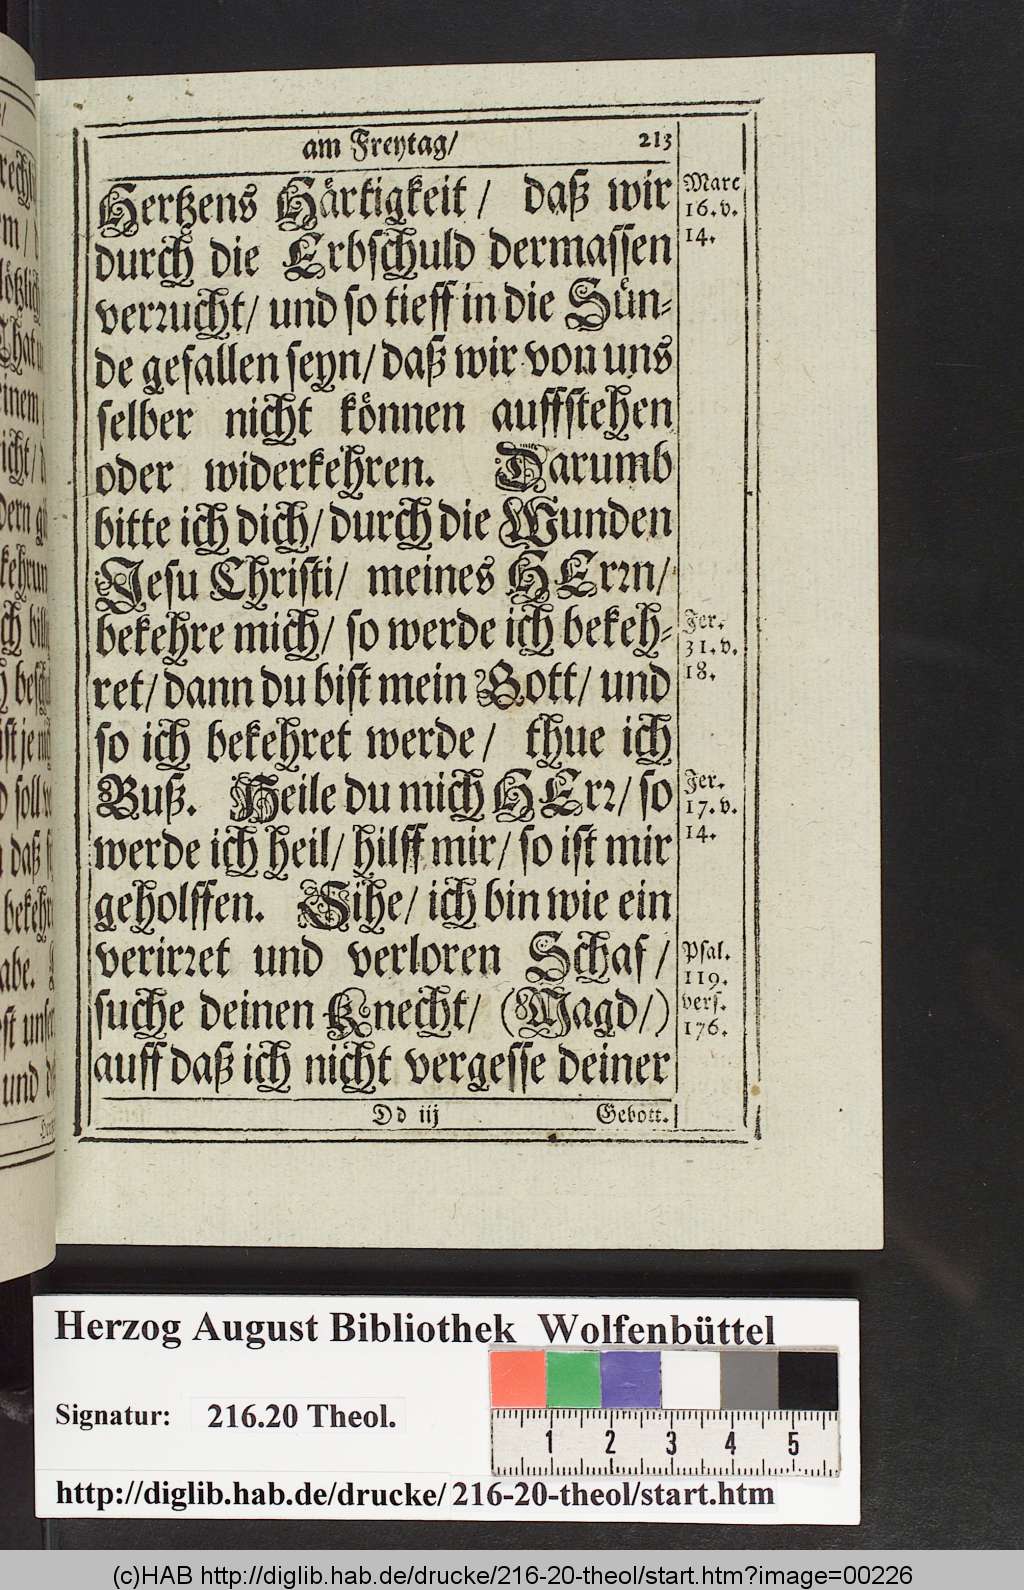 am Freytag/ 213
Hertzens Härtigkeit / daß wir
durch die Erbschuld dermassen
verrucht/ und so tieff in die Sün-
de gefallen seyn/ daß wir von uns
selber nicht können auffstehen
oder widerkehren. Darumb
bitte ich dich/ durch die Wunden
Jesu Christi/ meines HErrn/
bekehre mich/ so werde ich bekeh-
ret/ dann du bist mein Gott/ und
so ich bekehret werde/ thue ich
Buß. Heile du mich HErr/ so
werde ich heil/ hilff mir/ so ist mir
geholffen. Sihe/ ich bin wie ein
verirret und verloren Schaf/
suche deinen Knecht/ (Magd/)
auff daß ich nicht vergesse deiner
Dd iij Gebott.
Marc
16. v.
14.
Jer.
31. v.
18.
Jer.
17. v.
14.
Psal.
119.
vers.
176.
Herzog August Bibliothek Wolfenbüttel
Signatur: 216.20 Theol.
1 2 3 4 5
http://diglib.hab.de/drucke/ 216-20-theol/start.htm
(c)HAB http://diglib.hab.de/drucke/216-20-theol/start.htm?image=00226